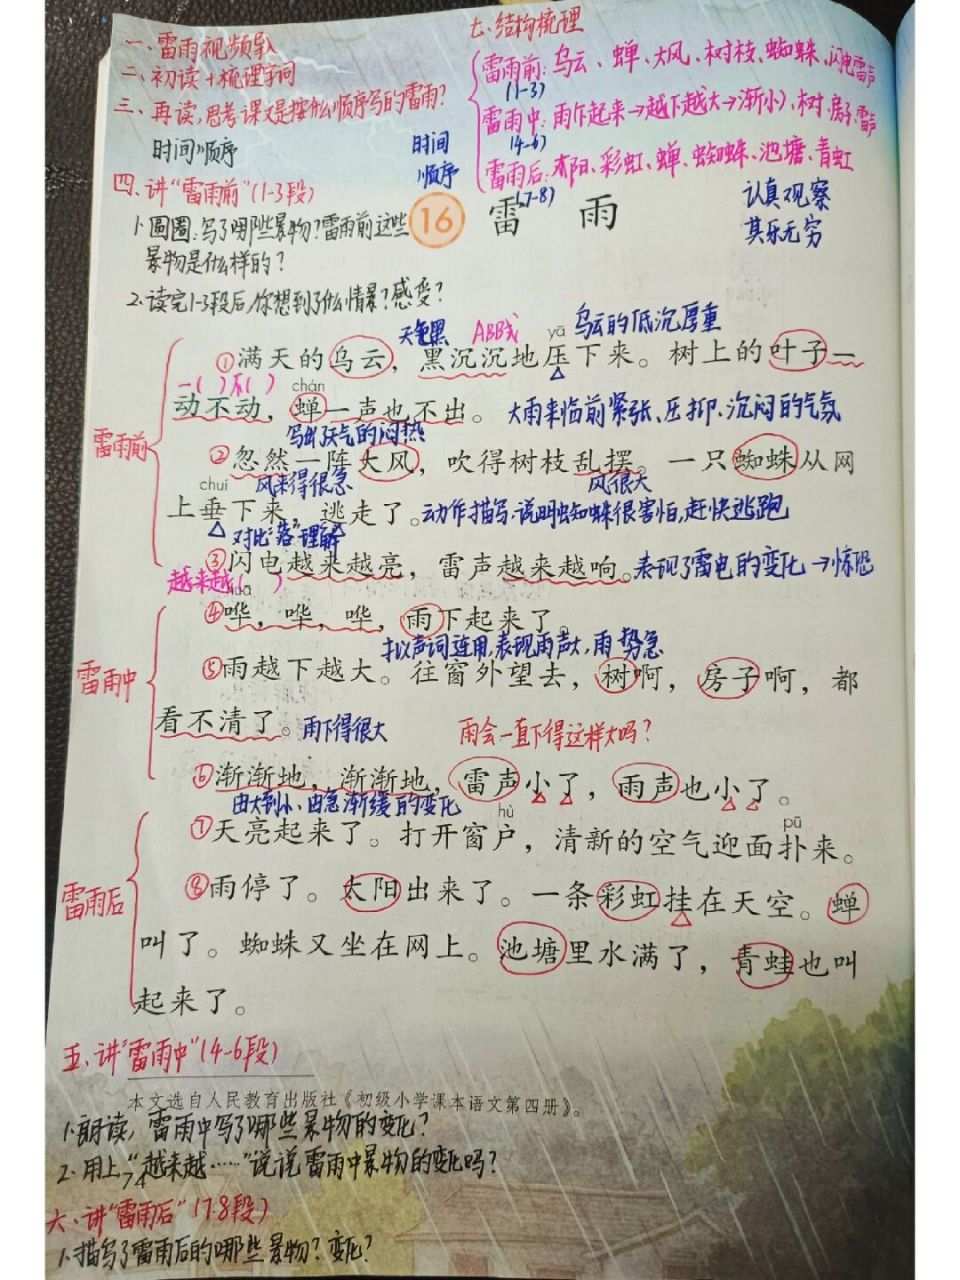 一、雷雨视频导入
二、初读+梳理字词
三、再读,思考课文是按什么顺序写的雷雨?
时间顺序
时间
顺序
四、讲“雷雨前”(1-3段)
1.圆圈:写了哪些景物?雷雨前这些
景物是什么样的?
2.读完1-3段后,你想到了什么情景?感受?
七、结构梳理
雷雨前:乌云、蝉、大风、树枝、蜘蛛、闪电雷声
(1-3)
雷雨中:雨(下起来→越下越大→渐小)、树、房子、雷声
(4-6)
雷雨后:太阳、彩虹、蝉、蜘蛛、池塘、青蛙
(7-8)
认真观察
其乐无穷
16 雷 雨
天色黑 ABB式 yā 乌云的低沉厚重
①满天的乌云,黑沉沉地压下来。树上的叶子一
一( )不( ) chán
动不动,蝉一声也不出。 大雨来临前紧张、压抑、沉闷的气氛
写出了天气的闷热
雷雨前
②忽然一阵大风,吹得树枝乱摆。一只蜘蛛从网
chuí 风来得很急 风很大
上垂下来,逃走了。动作描写.说明蜘蛛很害怕,赶快逃跑
对比“落”理解
③闪电越来越亮,雷声越来越响。表现了雷电的变化→惊恐
越来越( ) huā
④哗,哗,哗,雨下起来了。
拟声词连用,表现雨声大,雨势急
雷雨中
⑤雨越下越大。往窗外望去,树啊,房子啊,都
看不清了。雨下得很大 雨会一直下得这样大吗?
⑥渐渐地,渐渐地,雷声小了,雨声也小了。
由大到小、由急渐缓的变化 hù pū
⑦天亮起来了。打开窗户,清新的空气迎面扑来。
雷雨后
⑧雨停了。太阳出来了。一条彩虹挂在天空。蝉
叫了。蜘蛛又坐在网上。池塘里水满了,青蛙也叫
起来了。
五、讲“雷雨中”(4-6段)
本文选自人民教育出版社《初级小学课本语文第四册》。
1.朗读,雷雨中写了哪些景物的变化?
2.用上“越来越……”说说雷雨中景物的变化吗?
74
六、讲“雷雨后”(7.8段)
1.描写了雷雨后的哪些景物?变化?